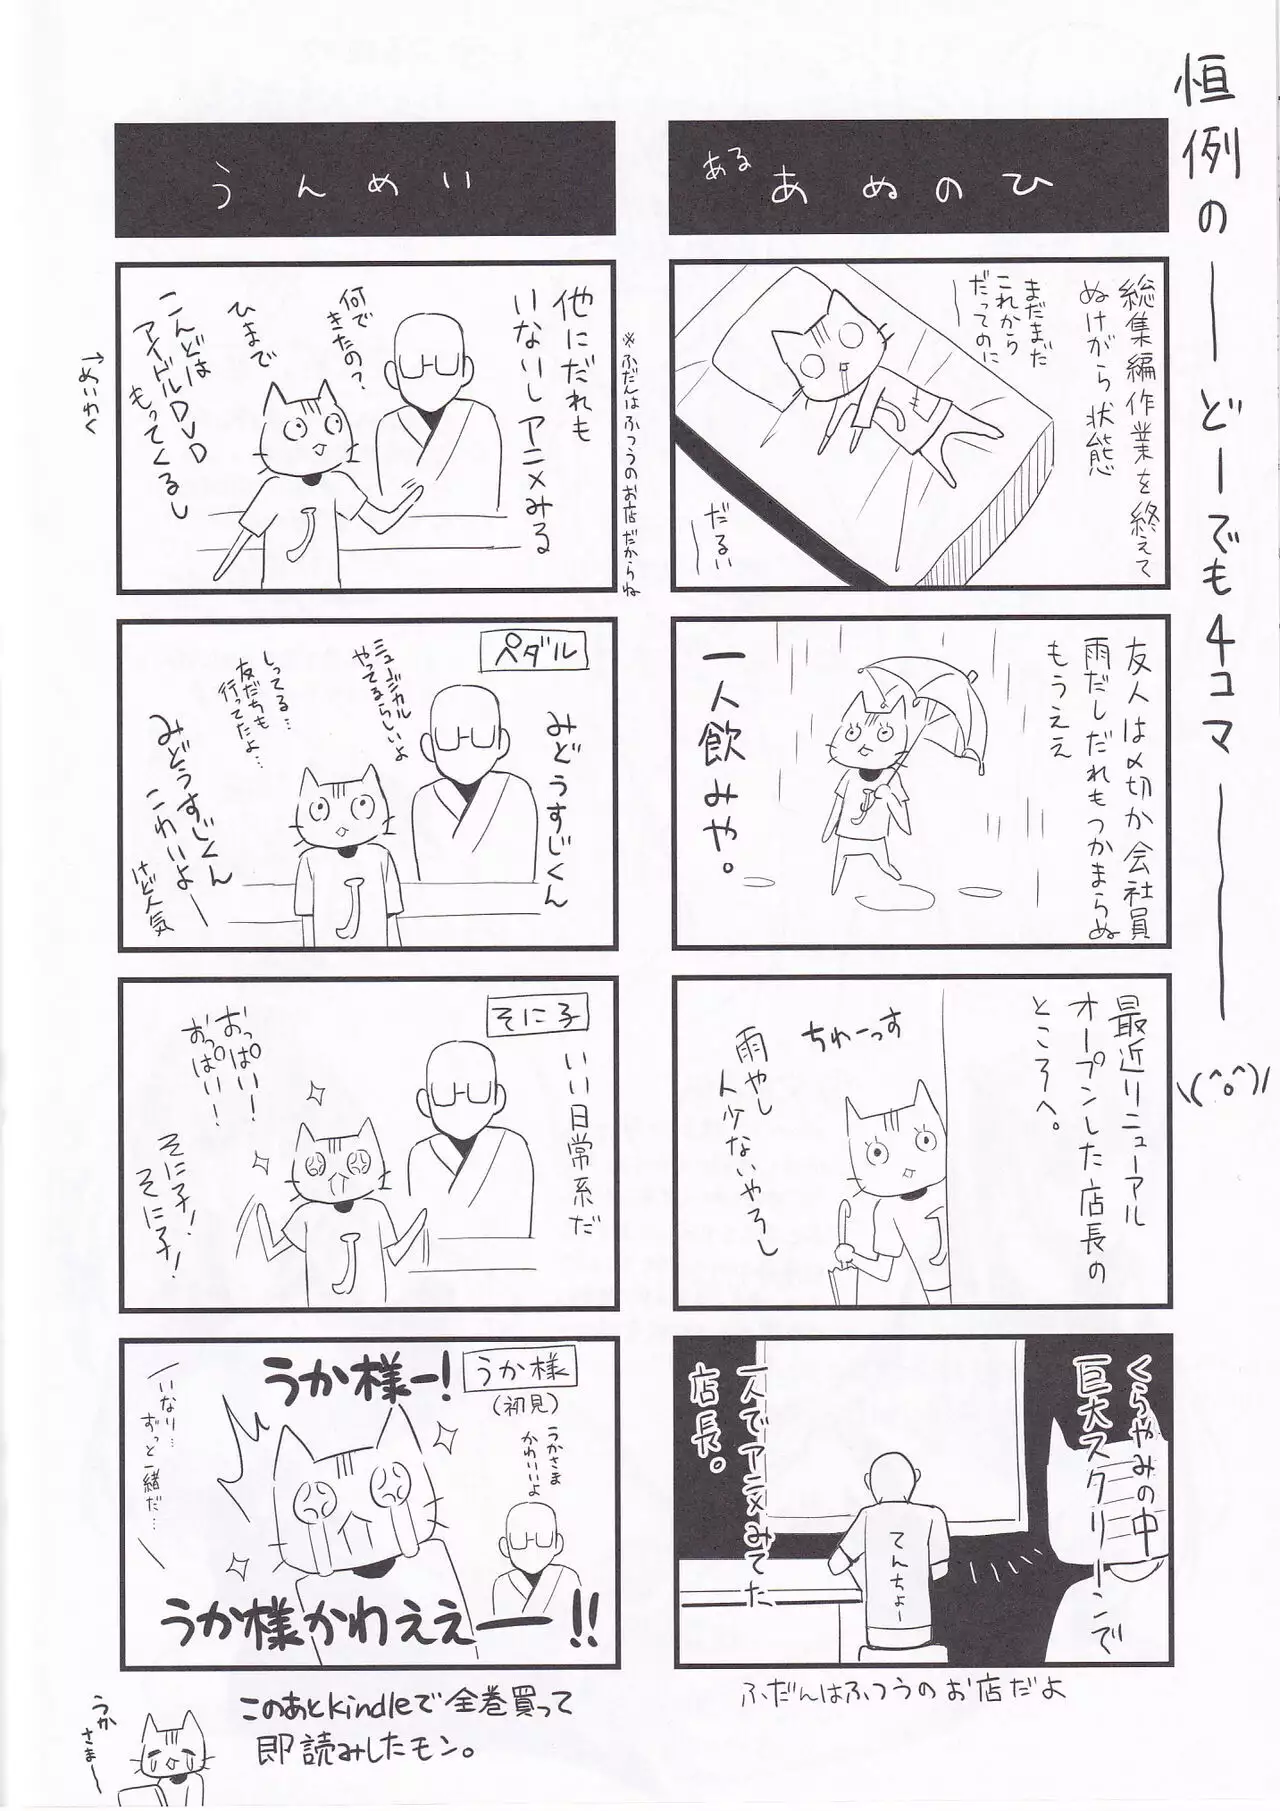 恒例の ── どーでも4コマ ──── \(^o^)/
あるあめのひ
総集編作業を終えて
ぬけがら状態
まだまだ
これから
だってのに
だるい
友人は〆切か会社員
雨だしだれもつかまらぬ
もうええ
一人飲みや。
最近リニューアル
オープンした店長の
ところへ。
ちわーっす
雨やし
人少ないやろし
くらやみの中
巨大スクリーンで
一人でアニメみてた
店長。
てんちょー
ふだんはふつうのお店だよ
うんめい
他にだれも
いないしアニメみる
※ふだんはふつうのお店だからね
何で
きたの?
ひまで
こんどは
アイドルDVD
もってくるし
→めいわく
ペダル
みどうすじくん
ミュージカル
やってるらしいよ
しってる…
友だちも
行ってたよ…
みどうすじくん
こわいよー
けど人気
そに子
いい日常系だ
おっぱい!
おっぱい!
そに子!
そに子!
うか様
(初見)
うかさま
かわいいよ
うか様ー!
いなり…
ずっと一緒だ…
うか様かわええー!!
このあとkindleで全巻買って
即読みしたモン。
うか
さまー